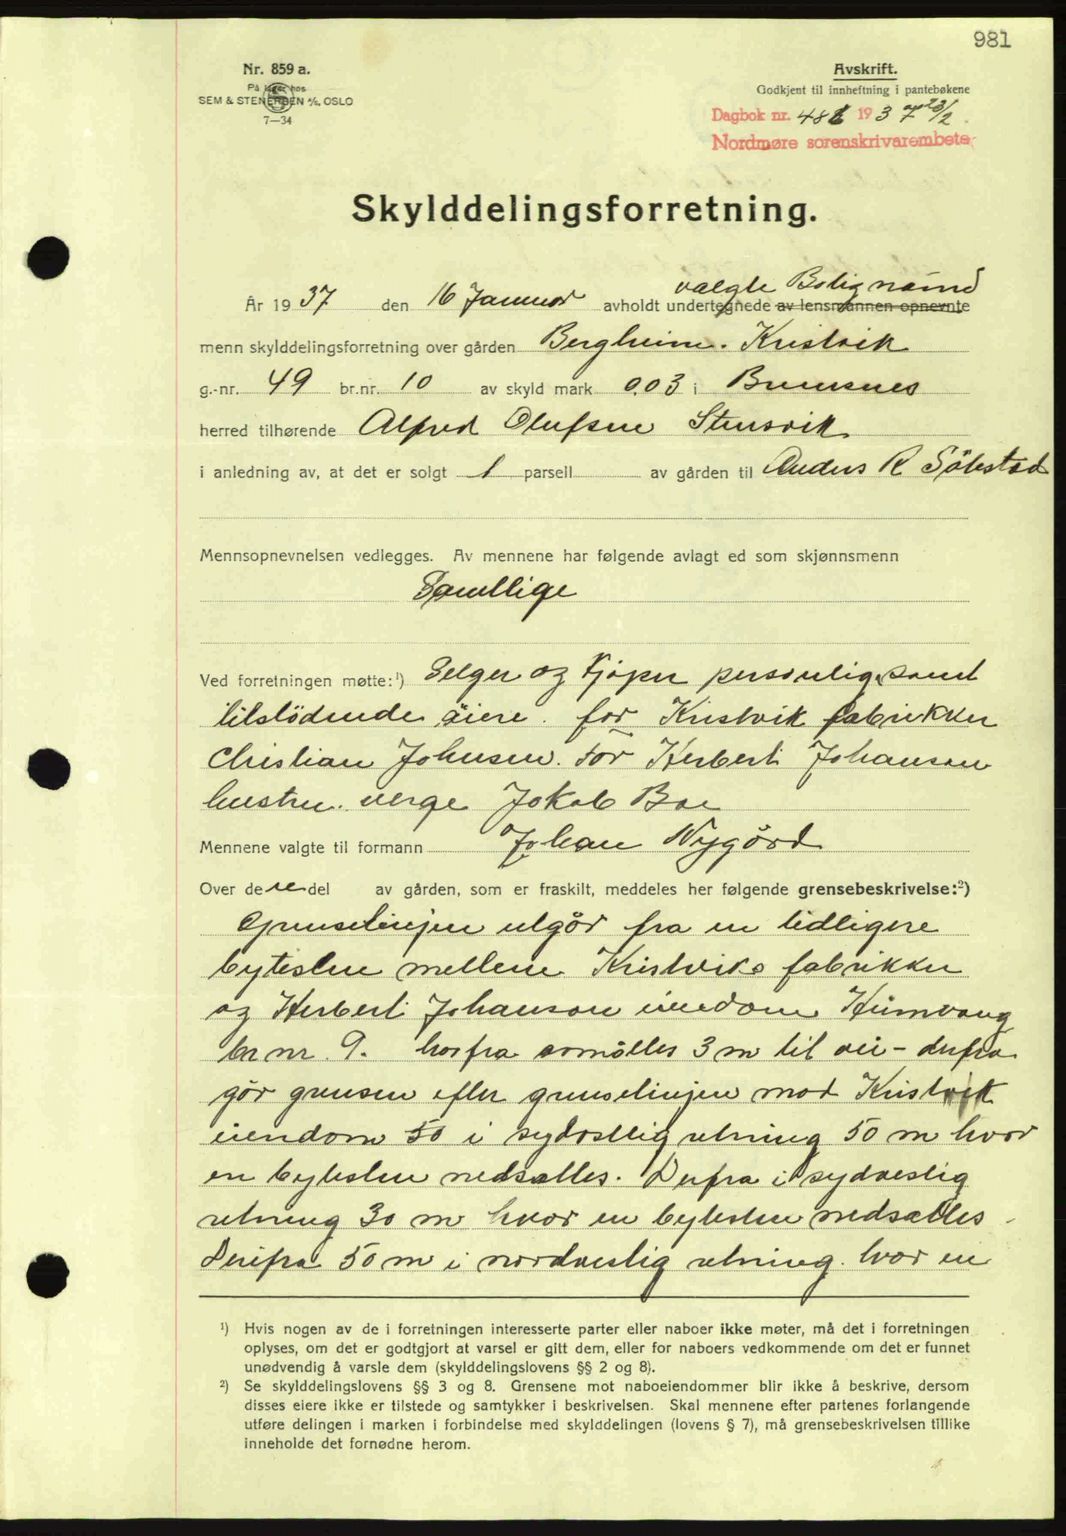 981
Nr. 859 a.
På lager hos
SEM & STENERSEN A/S, OSLO
7—34
Avskrift.
Godkjent til innheftning i pantebøkene
Dagbok nr. 48 1937 23/2
Nordmøre sorenskrivarembete
Skylddelingsforretning.
valgte Bolignämd
År 1937 den 16 Januar avholdt undertegnede av lensmannen opnevnte
menn skylddelingsforretning over gården Bergheim. Kristvik
g.-nr. 49 br.nr. 10 av skyld mark 0.03 i Bremsnes
herred tilhørende Alfred Olufsen Stensvik
i anledning av, at det er solgt 1 parsell av gården til Anders R Sölestad
Mennsopnevnelsen vedlegges. Av mennene har følgende avlagt ed som skjønnsmenn
Samtlige
Ved forretningen møtte:¹) Selger og Kjöper personlig samt
tilstödende eiere. for Kristvik fabrikker
Christian Johnsen. For Herbert Johanson
hustru. verge Jokob Boe
Mennene valgte til formann Johan Nygörd
Over denne del av gården, som er fraskilt, meddeles her følgende grensebeskrivelse:²)
Grenselinjen utgör fra en tidligere
bytesten mellem Kristviks fabrikker
og Herbert Johanson eiendom Heimvang
br nr. 9. herfra avmåles 3 m til vei - derfra
gör grensen efter grenselinjen mod Kristvik
eiendom 50 i sydostlig retning 50 m hvor
en bytesten nedsættes. Derfra i sydvestlig
retning 30 m hvor en bytesten nedsættes
Derifra 50 m i nordvestlig retning. hvor en
¹) Hvis nogen av de i forretningen interesserte parter eller naboer ikke møter, må det i forretningen
oplyses, om det er godtgjort at varsel er gitt dem, eller for naboers vedkommende om det er funnet
unødvendig å varsle dem (skylddelingslovens §§ 2 og 8).
²) Se skylddelingslovens §§ 3 og 8. Grensene mot naboeiendommer blir ikke å beskrive, dersom
disses eiere ikke er tilstede og samtykker i beskrivelsen. Skal mennene efter partenes forlangende
utføre delingen i marken i forbindelse med skylddelingen (lovens § 7), må grensebeskrivelsen tillike
inneholde det fornødne herom.